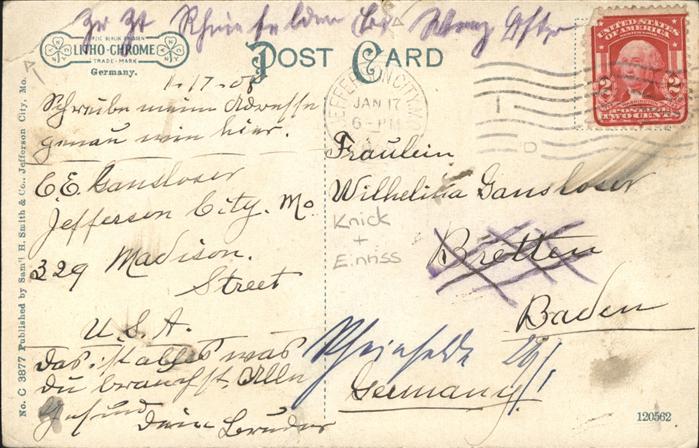 Zr Zt Rheinfelden bei Wwrz
LEIPZIG BERLIN DRESDEN
LITHO-CHROME
TRADE-MARK
Germany.
POST CARD
UNITED STATES
OF AMERICA
2 2
POSTAGE
TWO CENTS
JEFFERSON CITY, MO.
JAN 17
6-PM
1-17-08
Schreibe meine Adresse
genau wie hier.
C.E. Gansloser
Jefferson City. Mo
329 Madison.
Street
U.S.A.
Das ist alles was
du brauchst. Alle
gesund Dein Bruder
Fräulein
Wilhelina Gansloser
Knick
+
Einriss
Bretten
Baden
Rheinfelde 28/1
Germany
No. C 3877 Published by Sam'l H. Smith & Co., Jefferson City, Mo.
120562